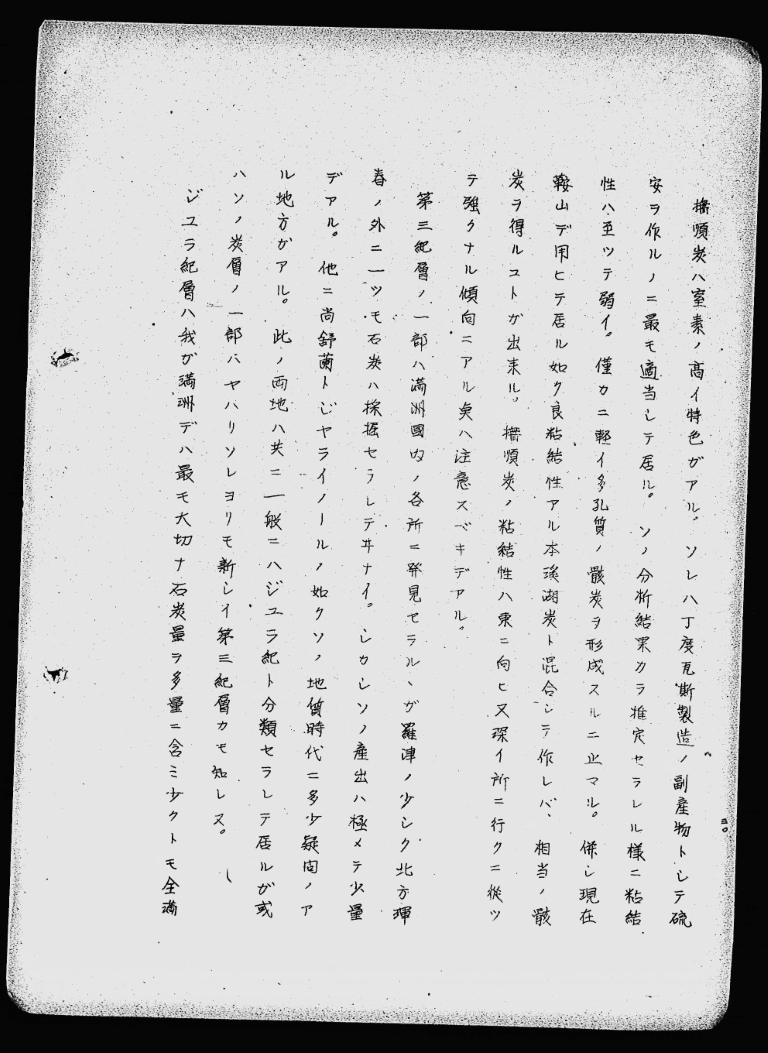 撫順炭ハ窒素ノ高イ特色ガアル。ソレハ丁度瓦斯製造ノ副産物トシテ硫
安ヲ作ルノニ最モ適当シテ居ル。ソノ分析結果カラ推定セラレル様ニ粘結
性ハ至ツテ弱イ。僅カニ軽イ多孔質ノ骸炭ヲ形成スルニ止マル。併シ現在
鞍山デ用ヒテ居ル如ク良粘結性アル本溪湖炭ト混合シテ作レバ、相当ノ骸
炭ヲ得ルコトガ出来ル。撫順炭ノ粘結性ハ東ニ向ヒ又深イ所ニ行クニ從ツ
テ強クナル傾向ニアル奌ハ注意スベキデアル。
第三紀層ノ一部ハ満洲國内ノ各所ニ発見セラルヽガ羅津ノ少シク北方琿
春ノ外ニ一ツモ石炭ハ採掘セラレテヰナイ。シカシソノ産出ハ極メテ少量
デアル。他ニ尚舒蘭トジヤライノールノ如クソノ地質時代ニ多少疑問ノア
ル地方ガアル。此ノ両地ハ共ニ一般ニハジユラ紀ト分類セラレテ居ルガ或
ハソノ炭層ノ一部ハヤハリソレヨリモ新シイ第三紀層カモ知レヌ。
ジユラ紀層ハ我ガ満洲デハ最モ大切ナ石炭量ヲ多量ニ含ミ少クトモ全満
30